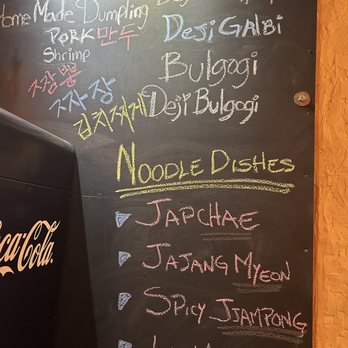 Home Made Dumpling
PORK 만두
Shrimp
짜장면
김치찌개
DEJI GALBI
Bulgogi
Deji Bulgogi
NOODLE DISHES
JAPCHAE
JAJANG MYEON
SPICY JJAMPONG
Coca-Cola